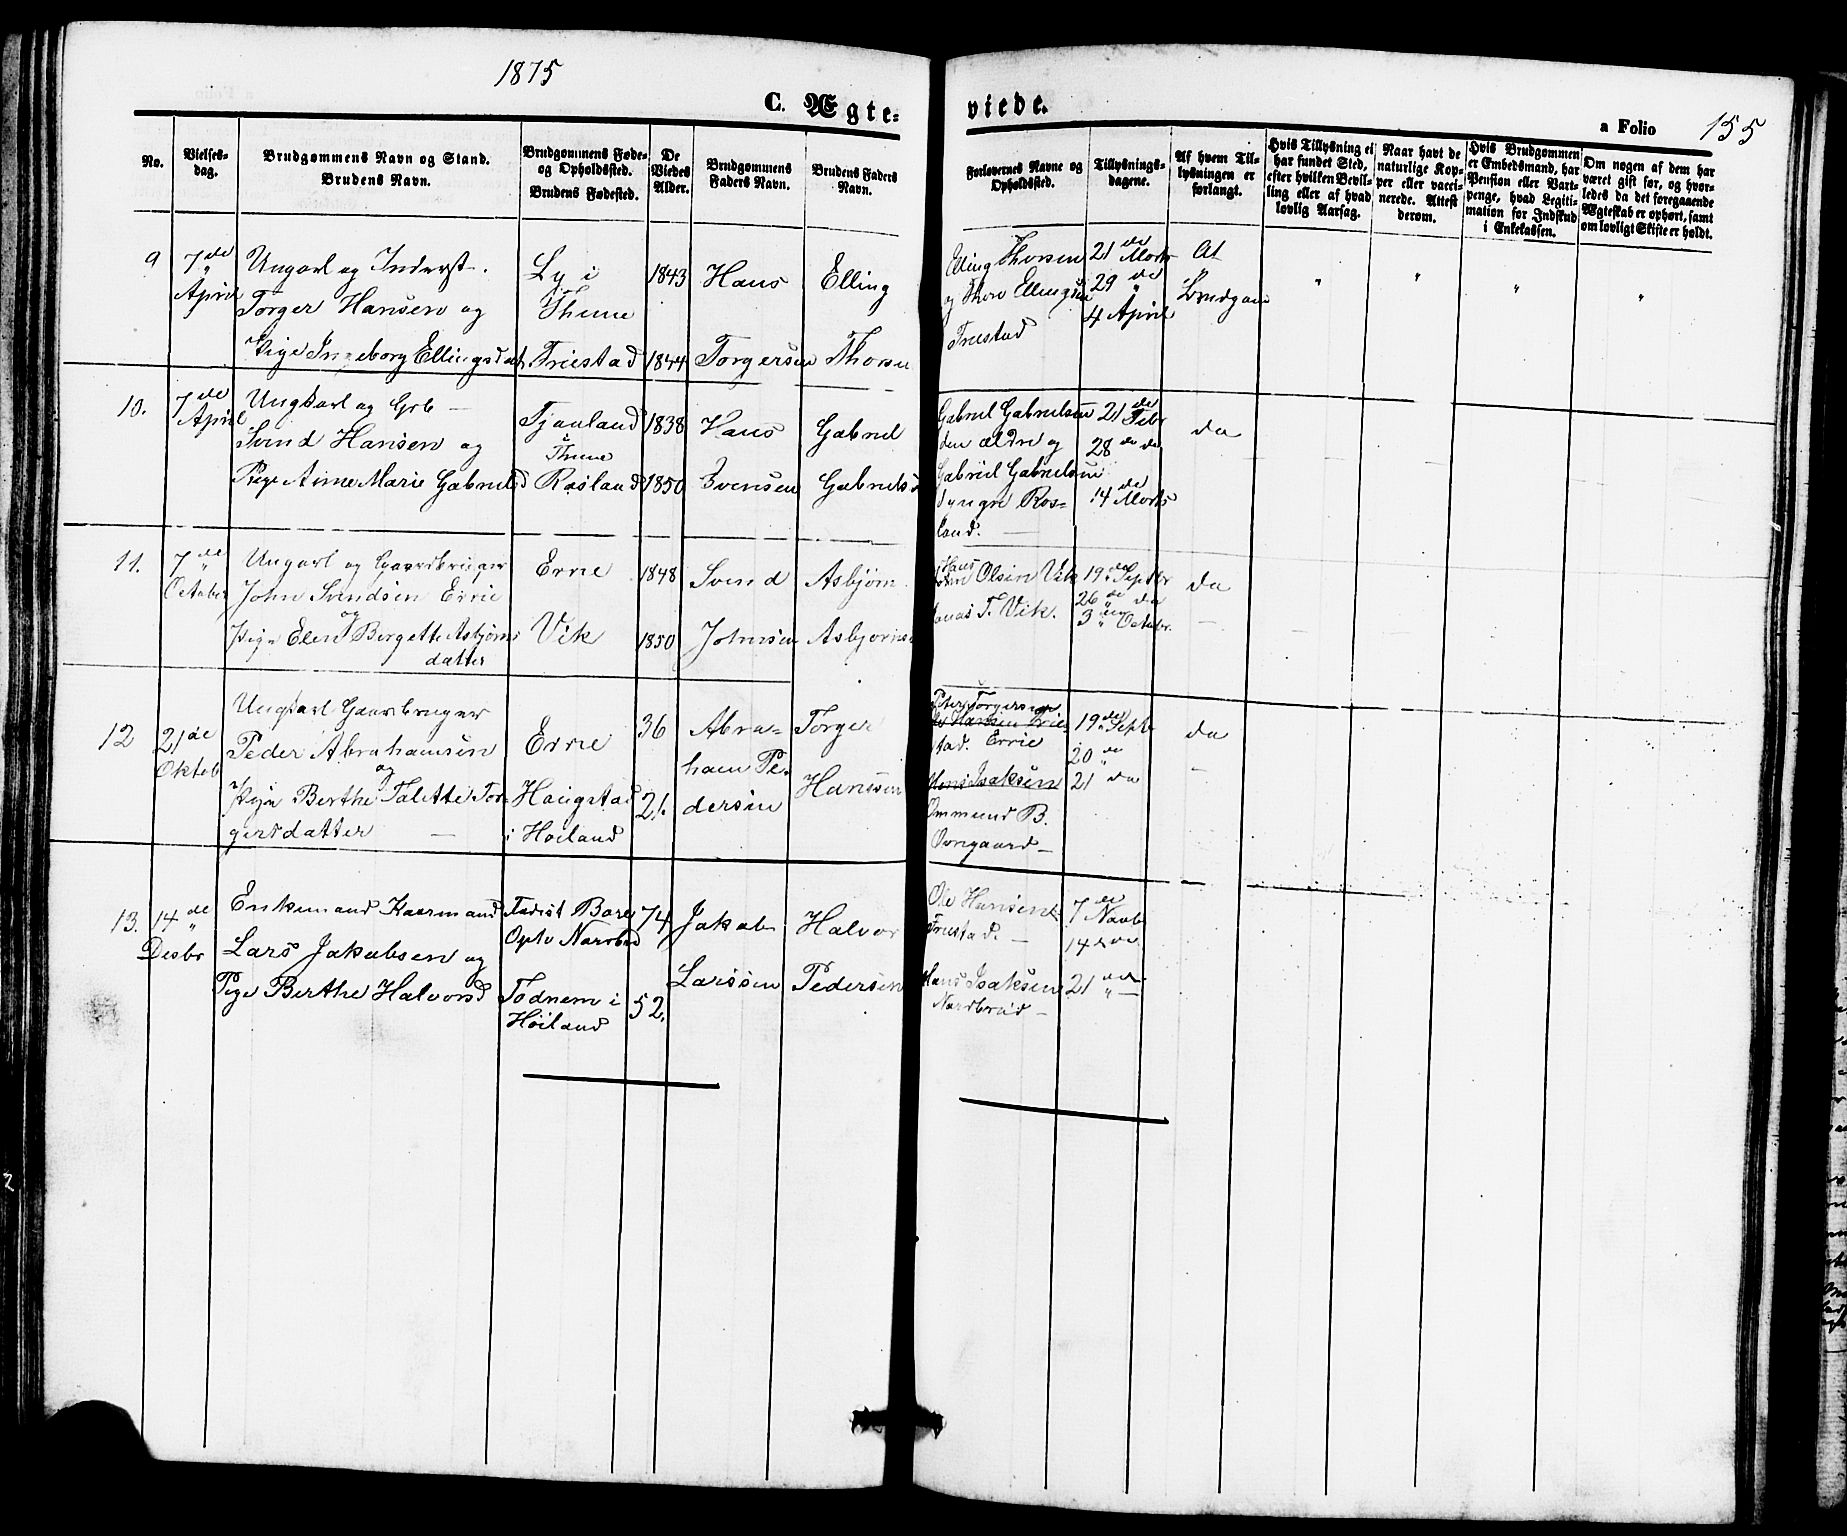 1875
C. Ægte-
viede.
a Folio 155
No.
Vielses-
dag.
Brudgommens Navn og Stand.
Brudens Navn.
Brudgommens Føde-
og Opholdssted.
Brudens Fødested.
De
Viedes
Alder.
Brudgommens
Faders Navn.
Brudens Faders
Navn.
Forlovernes Navne og
Opholdssted.
Tillysnings-
dagene.
Af hvem Til-
lysningen er
forlangt.
Hvis Tillysning ei
har fundet Sted,
efter hvilken Bevil-
ling eller af hvad
lovlig Aarsag.
Naar havt de
naturlige Kop-
per eller vacci-
nerede. Attest
derom.
Hvis Brudgommen
er Embedsmand, har
Pension eller Vart-
penge, hvad Legiti-
mation for Indskud
i Enkekassen.
Om nogen af dem har
været gift før, og hvor-
ledes da det foregaaende
Ægteskab er ophørt, samt
om lovligt Skifte er holdt.
9
7de
April
Ungarl og Inderst.
Torger Hansen og
Pige Ingeborg Ellingsdatt
Ly i
Thime
Friestad
1843
1844
Hans
Torgersen
Elling
Thorsen
Elling Thorsen
og Thore Ellingsen
Friestad
21de Marts
29de "
4 April
At
Brudgom
" " " "
10.
7de
April
Ungkarl og Grb -
Svend Hansen og
Pige Anne Marie Gabrielsd
Tjanland
i
Thime
Rosland
1838
1850
Hans
Svensen
Gabriel
Gabriels
Gabriel Gabrielsen
den ældre og
Gabriel Gabrielsen
yngre Ros-
land.
21de Febr
28de do
14de Marts
da
11.
7de
October
Ungarl og Gaardbruger
John Svendsen Errie
og
Pige Elen Bergette Asbjørns
datter
Errie
Vik
1848
1850
Svend
Johnsen
Asbjørn
Asbjørns
Hans
Olsen Vik
Jonas T. Vik.
19de Septbr
26de da
3die Octobr.
da
-
12
21de
Oktob
Ungkarl Gaarbruger
Peder Abrahamsen
og
Pige Berthe Talette Tor-
gersdatter -
Errie
Haugstad
i Høiland
36
21.
Abra-
ham Pe-
dersen
Torger
Hanssen
Peter Torgersen
Hansen Frie-
stad. Errie
Hans Isaksen
Ommund B.
Orregaard -
19de Septb
20de "
21 da
da
-
13.
14de
"
Desbr
Enkemand Kaarmand
Lars Jakobsen og
Pige Berthe Halvorsd
Bore
Opho Narrbød
Tødnem i
Høiland
74
52.
Jakob
Larssen
Halvor
Pedersen
Ole Hansen
Friestad. -
Hans Isaksen
Nordbrød -
7de Novb
14de
21 "